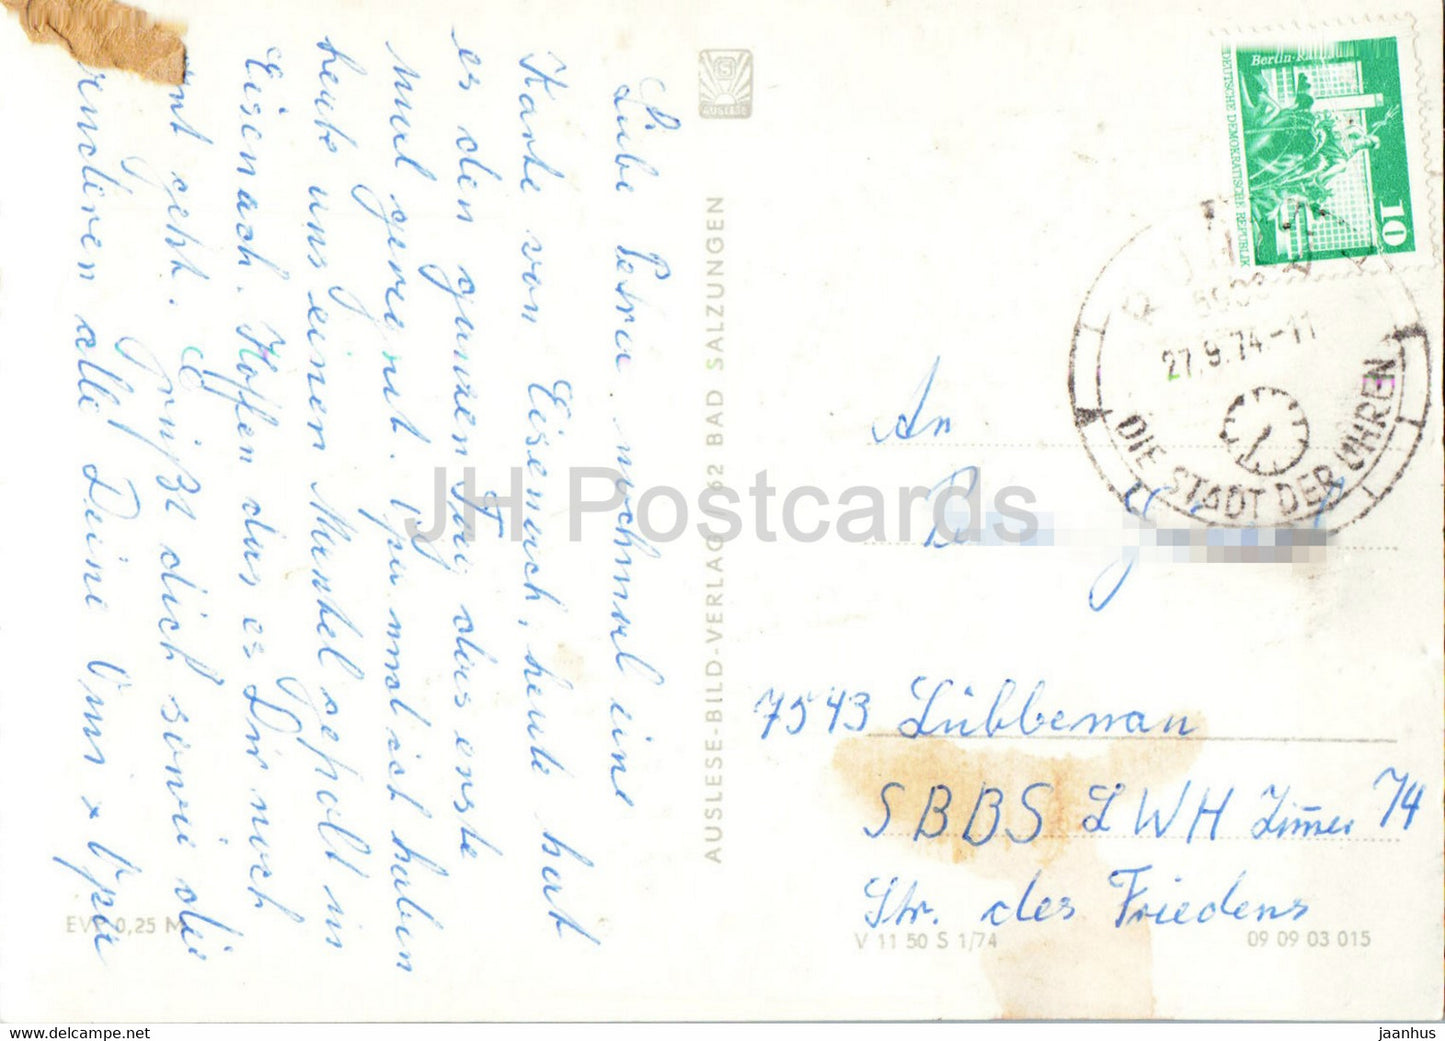 Liebe Petra nochmal eine
Karte von Eisenach, heute hat
es den ganzen Tag das erste
mal geregnet. Opa und ich haben
heute uns einen Mantel geholt in
Eisenach. Hoffen das es Dir noch
geht. Es grüßt dich sowie die
anderen alle Deine Oma + Opa
EVP 0,25 M
AUSLESE
AUSLESE-BILD-VERLAG /62 BAD SALZUNGEN
Berlin-Rathaus
DEUTSCHE DEMOKRATISCHE REPUBLIK
10
RUHLA
5906
27.9.74.-11
DIE STADT DER UHREN
An
7543 Lübbenau
SBBS LWH Zimmer 74
Str. des Friedens
V 11 50 S 1/74
09 09 03 015
JH Postcards
www.delcampe.net
jaanhus